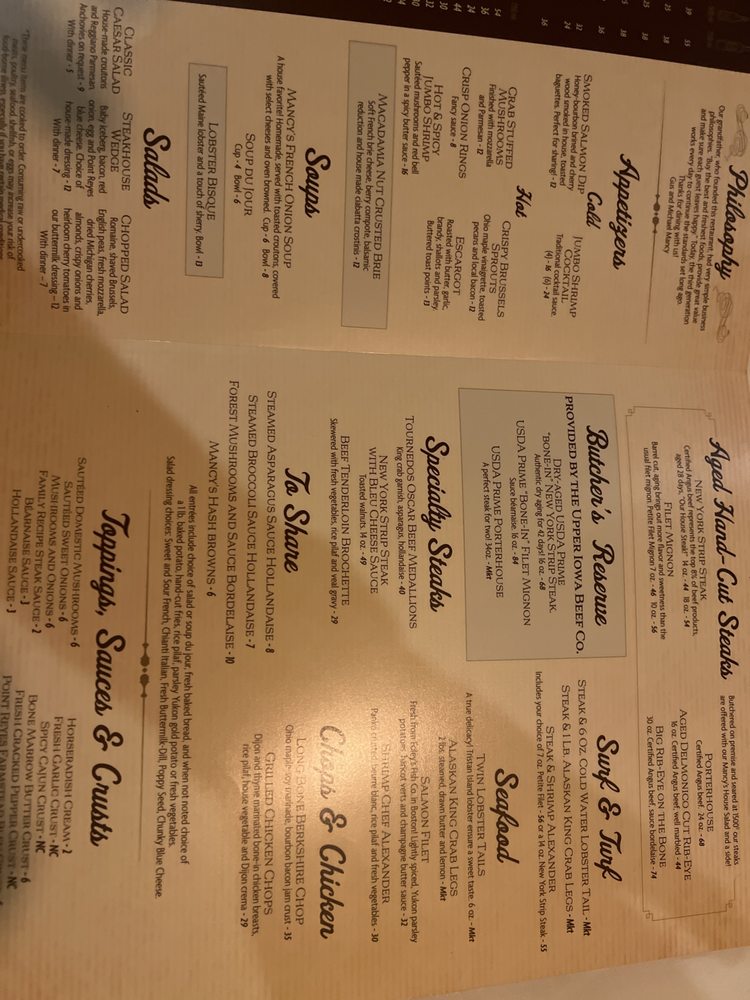 Philosophy
Our grandfather, who founded this restaurant, had very simple business
philosophies. "Buy the best and freshest foods, provide great value
and make sure each guest leaves happy". Today, the third generation
works every day to continue the standards set long ago.
Thanks for dining with us!
Gus and Michael Mancy
Appetizers
Cold
SMOKED SALMON DIP
Honey-bourbon brined and cherry
wood smoked in house, toasted
baguettes. Perfect for sharing! - 12
JUMBO SHRIMP
COCKTAIL
Traditional cocktail sauce.
(4) - 16 (6) - 24
Hot
CRAB STUFFED
MUSHROOMS
Finished with mozzarella
and Parmesan - 12
CRISP ONION RINGS
Fancy sauce - 8
HOT & SPICY
JUMBO SHRIMP
Sautéed mushrooms and red bell
pepper in a spicy butter sauce - 16
CRISPY BRUSSELS
SPROUTS
Ohio maple vinaigrette, toasted
pecans and local bacon - 12
ESCARGOT
Roasted with butter, garlic,
brandy, shallots and parsley.
Buttered toast points - 13
MACADAMIA NUT CRUSTED BRIE
Soft French brie cheese, berry compote, balsamic
reduction and house made ciabatta crostinis - 12
Soups
MANCY'S FRENCH ONION SOUP
A house favorite! Homemade, served with toasted croutons, covered
with select cheeses and oven browned. Cup - 6 Bowl - 8
SOUP DU JOUR
Cup - 4 Bowl - 6
LOBSTER BISQUE
Sautéed Maine lobster and a touch of sherry. Bowl - 13
Salads
CLASSIC
CAESAR SALAD
House-made croutons
and Reggiano Parmesan.
Anchovies on request - 9
With dinner - 5
STEAKHOUSE
WEDGE
Baby iceberg, bacon, red
onion, egg and Point Reyes
blue cheese. Choice of
house-made dressing - 12
With dinner - 7
CHOPPED SALAD
Romaine, shaved Brussels,
English peas, fresh mozzarella,
dried Michigan cherries,
almonds, crispy onions and
heirloom cherry tomatoes in
our buttermilk dressing - 12
With dinner - 7
*These menu items are cooked to order. Consuming raw or undercooked
meats, poultry, seafood, shellfish, or eggs may increase your risk of
food-borne illness, especially
Aged Hand-Cut Steaks
Butchered on premise and seared at 1500° our steaks
are offered with our Mancy's House Salad and 1 side!
NEW YORK STRIP STEAK
Certified Angus beef represents the top 8% of beef products,
aged 28 days. "Our House Steak!" 14 oz. - 44 18 oz. - 54
FILET MIGNON
Barrel cut, aging brings out more flavor and sweetness than the
usual filet mignon. Petite Filet Mignon 7 oz. - 46 10 oz. - 56
PORTERHOUSE
Certified Angus beef. 24 oz. - 68
AGED DELMONICO CUT RIB-EYE
16 oz. Certified Angus beef, well marbled - 44
BIG RIB-EYE ON THE BONE
30 oz. Certified Angus beef, sauce bordelaise - 74
Butcher's Reserve
PROVIDED BY THE UPPER IOWA BEEF CO.
DRY-AGED USDA PRIME
"BONE-IN" NEW YORK STRIP STEAK
Authentic dry aging for 42 days! 16 oz. - 68
USDA PRIME "BONE-IN" FILET MIGNON
Sauce béarnaise. 16 oz. - 84
USDA PRIME PORTERHOUSE
A perfect steak for two! 54oz. - Mkt
Surf & Turf
STEAK & 6 OZ. COLD WATER LOBSTER TAIL - Mkt
STEAK & 1 LB. ALASKAN KING CRAB LEGS - Mkt
STEAK & SHRIMP ALEXANDER
Includes your choice of 7 oz. Petite filet - 56 or a 14 oz. New York Strip Steak - 55
Specialty Steaks
TOURNEDOS OSCAR BEEF MEDALLIONS
King crab garnish, asparagus, hollandaise - 40
NEW YORK STRIP STEAK
WITH BLEU CHEESE SAUCE
Toasted walnuts. 14 oz. - 49
BEEF TENDERLOIN BROCHETTE
Skewered with fresh vegetables, rice pilaf and veal gravy - 29
Seafood
TWIN LOBSTER TAILS
A true delicacy! Tristan Island lobster ensure a sweet taste. 6 oz. - Mkt
ALASKAN KING CRAB LEGS
2 lbs. steamed, drawn butter and lemon - Mkt
SALMON FILET
Fresh from Foley's Fish Co. in Boston! Lightly spiced, Yukon parsley
potatoes, haricot verts and champagne butter sauce - 32
SHRIMP CHEF ALEXANDER
Panko crusted, beurre blanc, rice pilaf and fresh vegetables - 30
To Share
STEAMED ASPARAGUS SAUCE HOLLANDAISE - 8
STEAMED BROCCOLI SAUCE HOLLANDAISE - 7
FOREST MUSHROOMS AND SAUCE BORDELAISE - 10
MANCY'S HASH BROWNS - 6
Chops & Chicken
LONG BONE BERKSHIRE CHOP
Ohio maple-soy marinade, bourbon bacon jam crust - 35
GRILLED CHICKEN CHOPS
Dijon and thyme marinated bone-in chicken breasts,
rice pilaf, house vegetable and Dijon crema - 29
All entrées include choice of salad or soup du jour, fresh baked bread, and when not noted choice of
a 1 lb. baked potato, hand-cut fries, rice pilaf, parsley Yukon gold potato or fresh vegetables.
Salad dressing choices: Sweet and Sour French, Chianti Italian, Fresh Buttermilk-Dill, Poppy Seed, Chunky Blue Cheese.
Toppings, Sauces & Crusts
SAUTÉED DOMESTIC MUSHROOMS - 6
SAUTÉED SWEET ONIONS - 6
MUSHROOMS AND ONIONS - 6
FAMILY RECIPE STEAK SAUCE - 2
BÉARNAISE SAUCE - 3
HOLLANDAISE SAUCE - 3
HORSERADISH CREAM - 2
FRESH GARLIC CRUST - NC
SPICY CAJUN CRUST - NC
BONE MARROW BUTTER CRUST - 6
FRESH CRACKED PEPPER CRUST - NC
POINT REYES FARMSTEAD